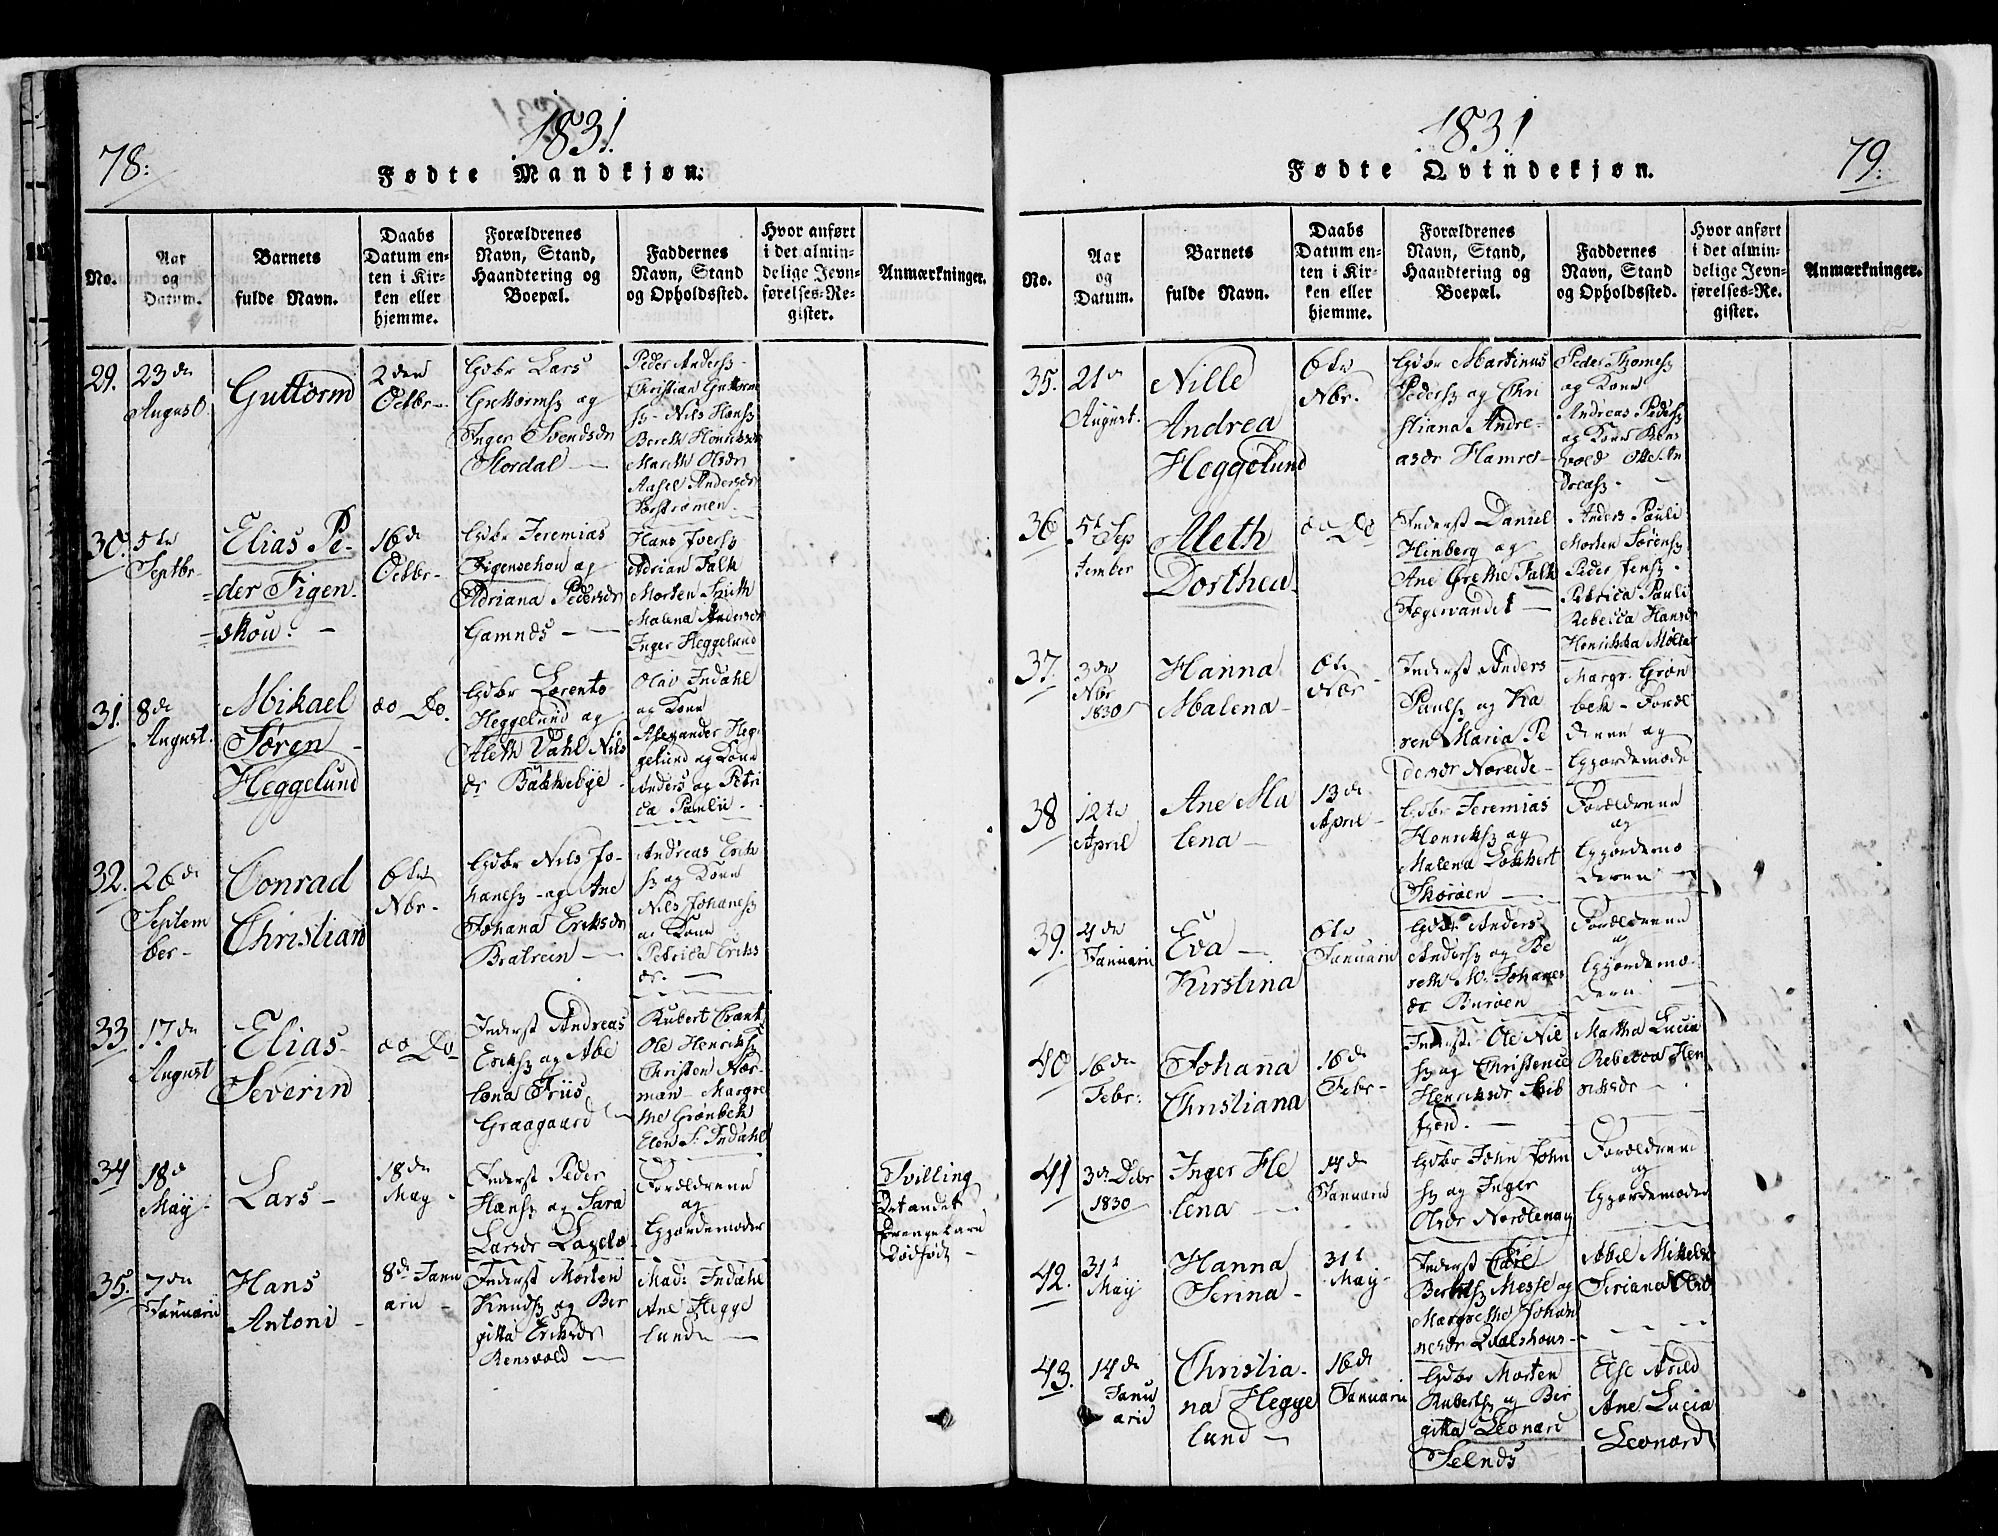 78.
1831
Fødte Mandkjøn.
No.
Aar
og
Datum.
Barnets
fulde Navn.
Daabs
Datum en-
ten i Kir-
ken eller
hjemme.
Forældrenes
Navn, Stand,
Haandtering og
Boepæl.
Faddernes
Navn, Stand
og Opholdssted.
Hvor anført
i det almin-
delige Jevn-
førelses-Re-
gister.
Anmærkninger.
29.
23de
August
Guttorm
2den
Octbr
Gdbr Lars
Guttorms og
Inger Svendsdr
Stordal
Peder Anders
Christian Guttorm
Nils Hans
Bereth Henriksdr
Mareth Olsdr
Aasel Andersdr
Sørstrømen
30.
5te
Septbr
Elias Pe-
der Figen-
skou.
16de
Octbr
Gdbr Jeremias
Figenschou og
Adriana Pedersdr
Gamnes
Hans Ivers
Adrian Falk
Morten Smith
Malena Andersdr
Inger Heggelund
31.
8de
August
Mikael
Søren
Heggelund
do Do.
Gdbr Lorents
Heggelund og
Aleth Vahl Nils
dr Bakkebye
Olav Indahl
og Kone
Alexander Heg-
gelund og Kone
Anders og Petri
ca Pauli
32.
26de
Septem
ber
Conrad
Christian
6te
Nbr
Gdbr Nils Jo-
hanes og Ane
Johana Eriksdr
Bratrein
Andreas Erik
og Kone
Nils Johanes
og Kone
Petrica Eriks
dr.
33
17de
August
Elias
Severin
do Do
Inderst Andreas
Eriks og Abe
lona Friis
Graagaard
Rubert Crant
Ole Henriks
Christen Nor-
man Margre
the Grønbek
Elen S. Indahl
34
18de
May
Lars
18de
May
Inderst Peder
Hans og Sara
Larsdr
Forældrene
og
Gjordemoder
Tvilling
Det andet
Drengebarn
Dødfødt
35.
7de
Januarii
Hans
Antoni
8de Janu
arii
Inderst Morten
Knuds og Ber
gitta Eriksdr
Rensvold
Mad: Indahl
Ane Hegge
lund
79.
1831
Fødte Qvindekjøn.
No.
Aar
og
Datum.
Barnets
fulde Navn.
Daabs
Datum en-
ten i Kir-
ken eller
hjemme.
Forældrenes
Navn, Stand,
Haandtering og
Boepæl.
Faddernes
Navn, Stand
og Opholdssted.
Hvor anført
i det almin-
delige Jevn-
førelses-Re-
gister.
Anmærkninger.
35.
21de
August.
Nille
Andrea
Heggelund
6te
Nbr.
Gdbr Martinus
Peders og Chri
stiana Andre-
asdr Hamre
Peder Thomes
og Kone
Andreas Peders
og Kone Rens
vold Otte An
dreas
36
5te Sep
tember
Aleth
Dorthea
do Do
Inderst Daniel
Hinberg og
Ane Grethe Falk
Jægervandet
Anders Pauli
Morten Sørens
Peder Jens
Petrica Pauli
Rebecca Hansdr
Henrikka Møller
37.
3de
Nbr
1830
Hanna
Malena
6te
Nbr
Inderst Anders
Pauls og Ka
ren Maria Pe
dersdr Noreide
Margr. Grøn
bek Foræl
drene og
Gjordemoder
38
12te
April
Ane Ma
lena
13de
April
Gdbr Jeremias
Henriks og
Malena Lokkert
Skorøen
Forældrene
og
Gjordemo
deren
39.
4de
Januarii
Eva
Kirstina
6te
Januarii
Gdbr Anders
Anders og Be
reth M. Johanes
dr Burøen
Forældrene
og
Gjordemo-
deren
40
16de
Febr:
Johana
Christiana
16de
Febr
Inderst Ole Nil
og Christence
Henriksdr Skib
fjord.
Martha Lucia
Rebecca Hen
riksdr
41
3de Dcbr
1830
Inger He
lena
14de
Januarii
Gdbr John John
og Inger
Olsdr Nordlenay
Forældrene
og
Gjordemoder
42.
31te
May
Hanna
Serina
31te
May
Inderst Carl
Bernts Messe og
Margrethe Johan
nesdr Qvalshous
Abel Mikkels
Siriana Olsdr
43.
14de
Janu
arii
Christia-
na Hegge
lund
16de
Januarii
Gdbr Morten
Ruberts og Ber
gitta Leonard
Selnes
Else Arild
Ane Lucia
Leonard